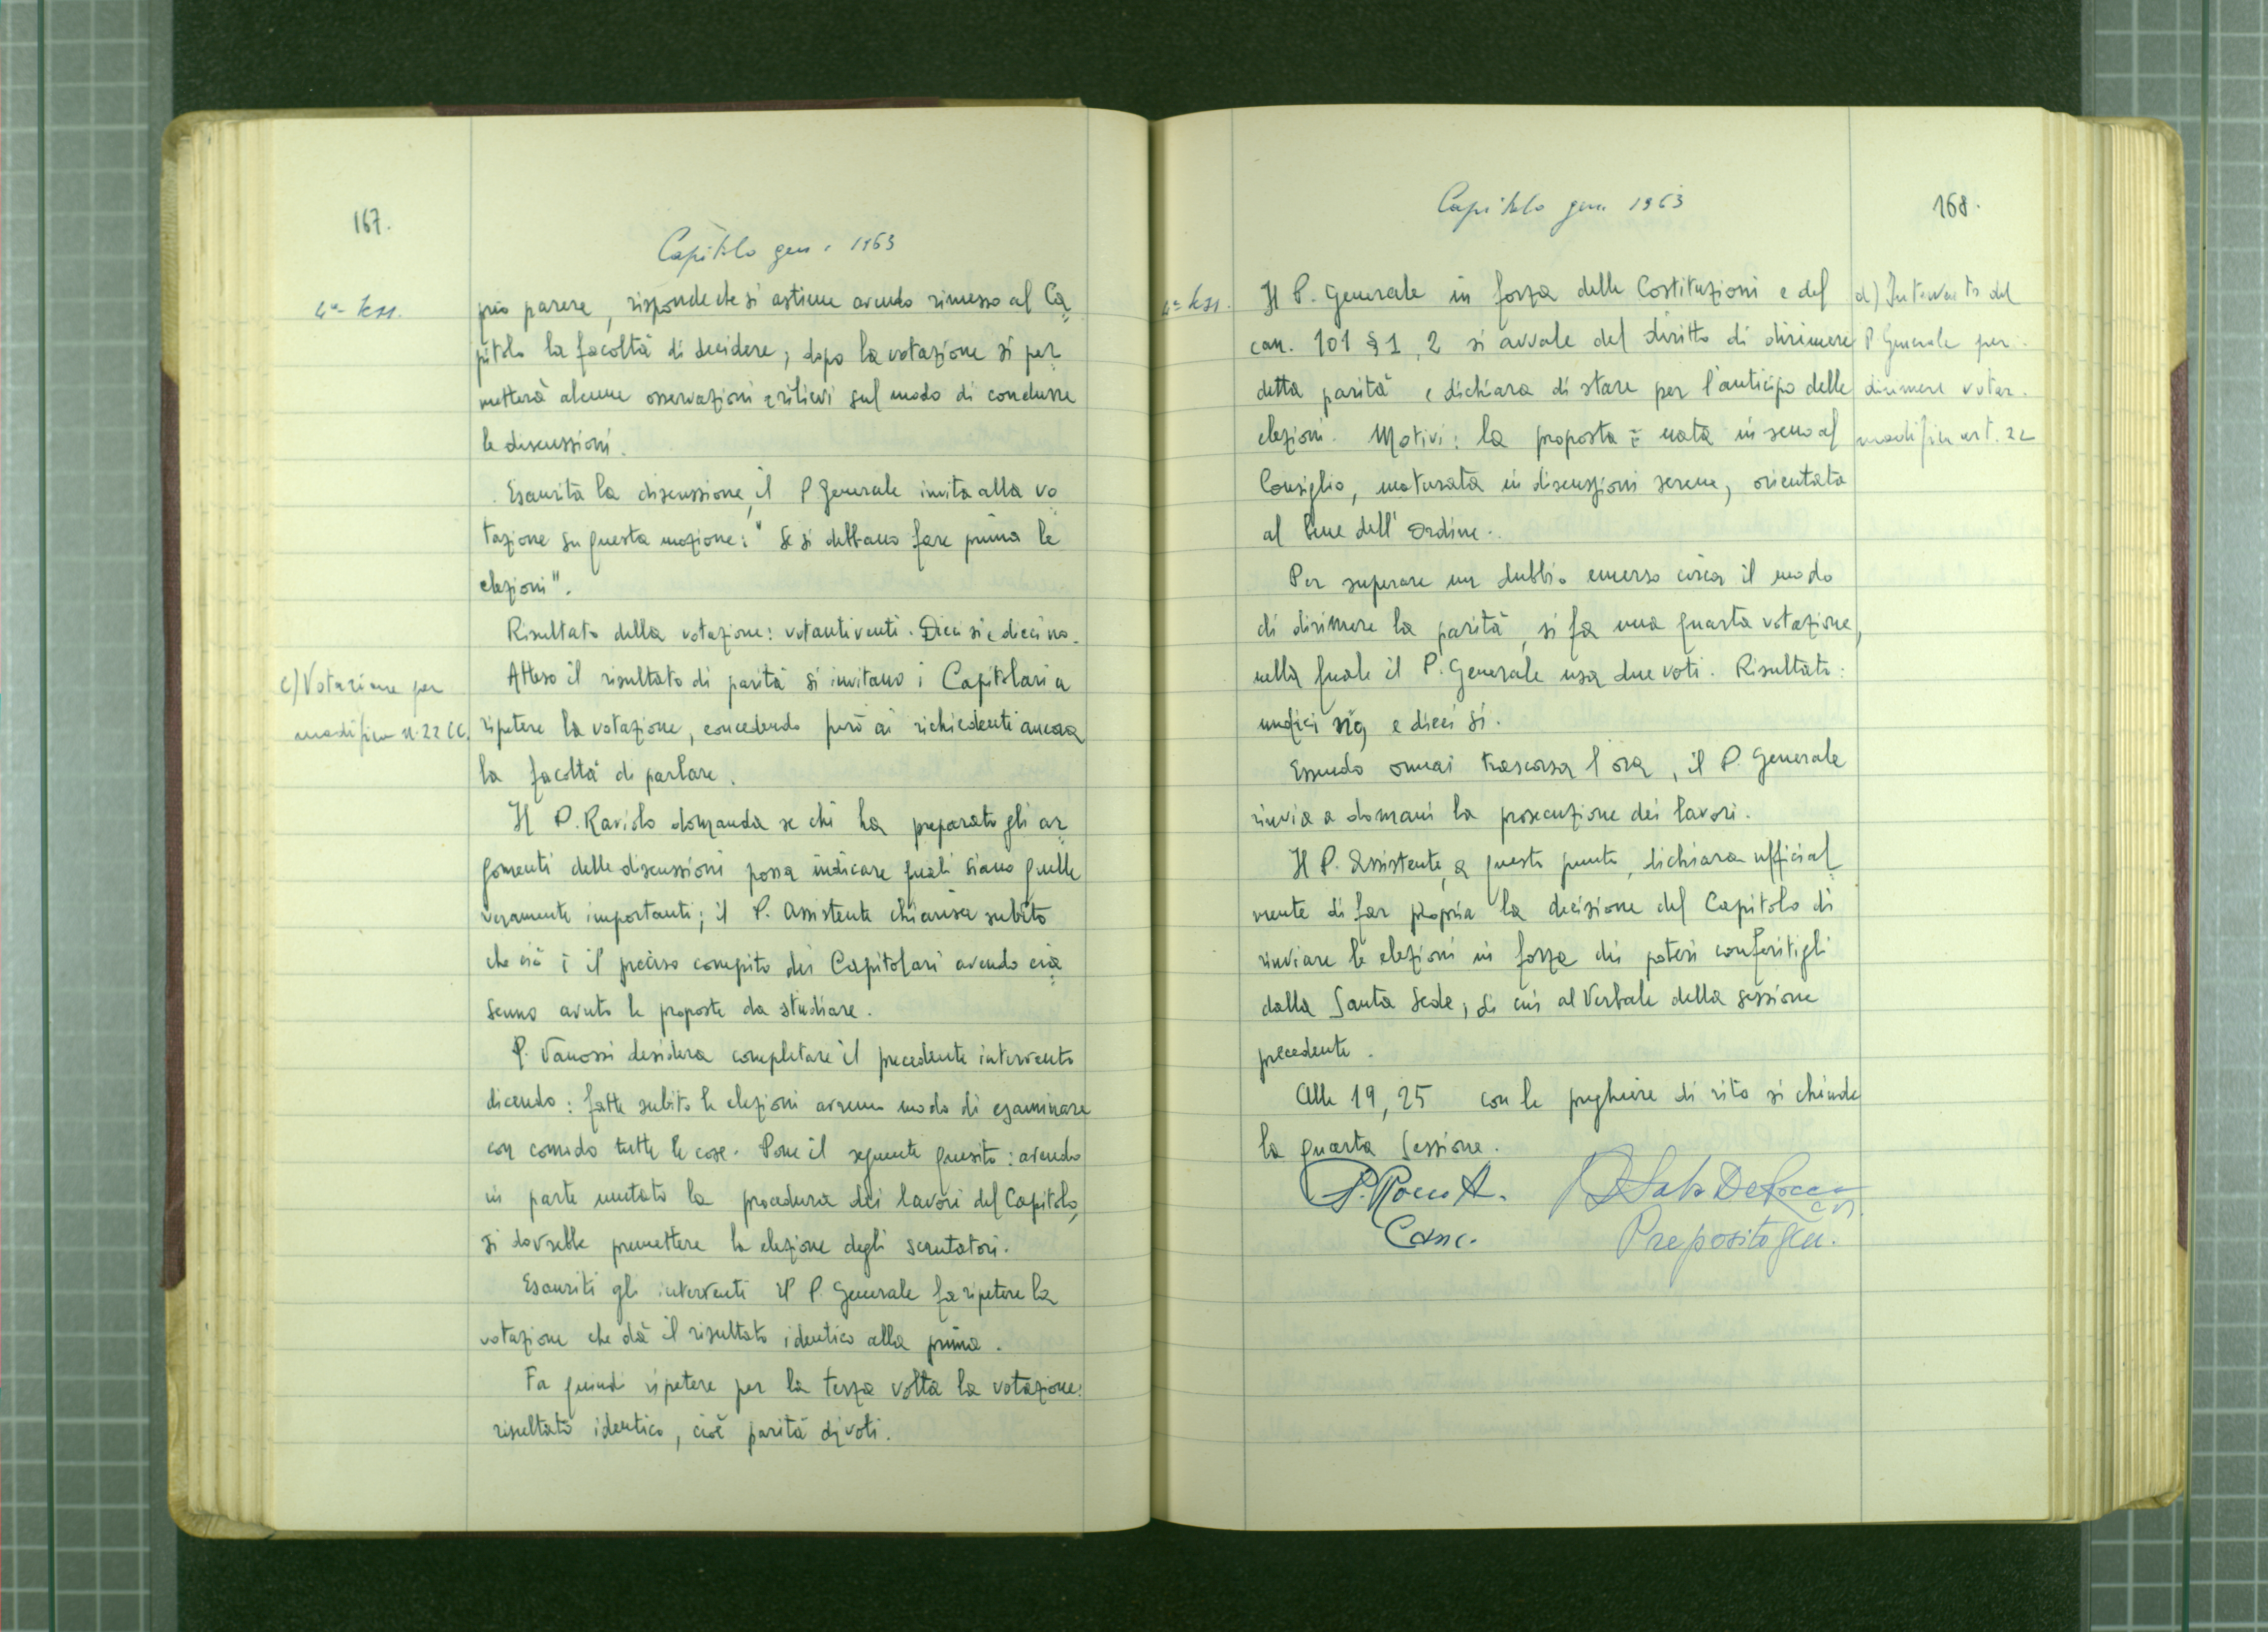 167.
Capitolo gen. 1963
4ª sess.
prio parere, risponde che si astiene avendo rimesso al Ca
pitolo la facoltà di decidere; dopo la votazione si per
metterà alcune osservazioni e rilievi sul modo di condurre
le discussioni.
Esaurita la discussione, il P. Generale invita alla vo
tazione su questa mozione: "Se si debbano fare prima le
elezioni".
Risultato della votazione: votanti venti. Dieci si e dieci no.
c) Votazione per
modifica n. 22 CC.
Atteso il risultato di parità si invitano i Capitolari a
ripetere la votazione, concedendo però ai richiedenti ancora
la facoltà di parlare.
Il P. Raviolo domanda se chi ha preparato gli ar
gomenti delle discussioni possa indicare quali siano quelle
veramente importanti; il P. Assistente chiarisce subito
che ciò è il preciso compito dei Capitolari avendo cia
scuno avuto le proposte da studiare.
P. Vanossi desidera completare il precedente intervento
dicendo: fatte subito le elezioni avremo modo di esaminare
con comodo tutte le cose. Pone il seguente quesito: avendo
in parte mutato la procedura dei lavori del Capitolo,
si dovrebbe premettere la elezione degli scrutatori.
Esauriti gli interventi il P. Generale fa ripetere la
votazione che dà il risultato identico alla prima.
Fa quindi ripetere per la terza volta la votazione:
risultato identico, cioè parità di voti.
Capitolo gen. 1963
168.
4ª sess.
Il P. Generale in forza delle Costituzioni e del
can. 101 § 1, 2 si avvale del diritto di dirimere
detta parità e dichiara di stare per l'anticipo delle
elezioni. Motivi: la proposta è nata in seno al
Consiglio, maturata in discussioni serene, orientata
al bene dell'Ordine.
d) Intervento del
P. Generale per
dirimere votaz.
modifica art. 22
Per superare un dubbio emerso circa il modo
di dirimere la parità, si fa una quarta votazione,
nella quale il P. Generale usa due voti. Risultato:
undici e dieci si.
Essendo ormai trascorsa l'ora, il P. Generale
rinvia a domani la prosecuzione dei lavori.
Il P. Assistente, a questo punto, dichiara ufficial
mente di far propria la decisione del Capitolo di
rinviare le elezioni in forza dei poteri conferitigli
dalla Santa Sede, di cui al Verbale della sessione
precedente.
Alle 19,25 con le preghiere di rito si chiude
la quarta Sessione.
P. Rocco A.
Canc.
Saba De Rocco
crs.
Preposito Gen.